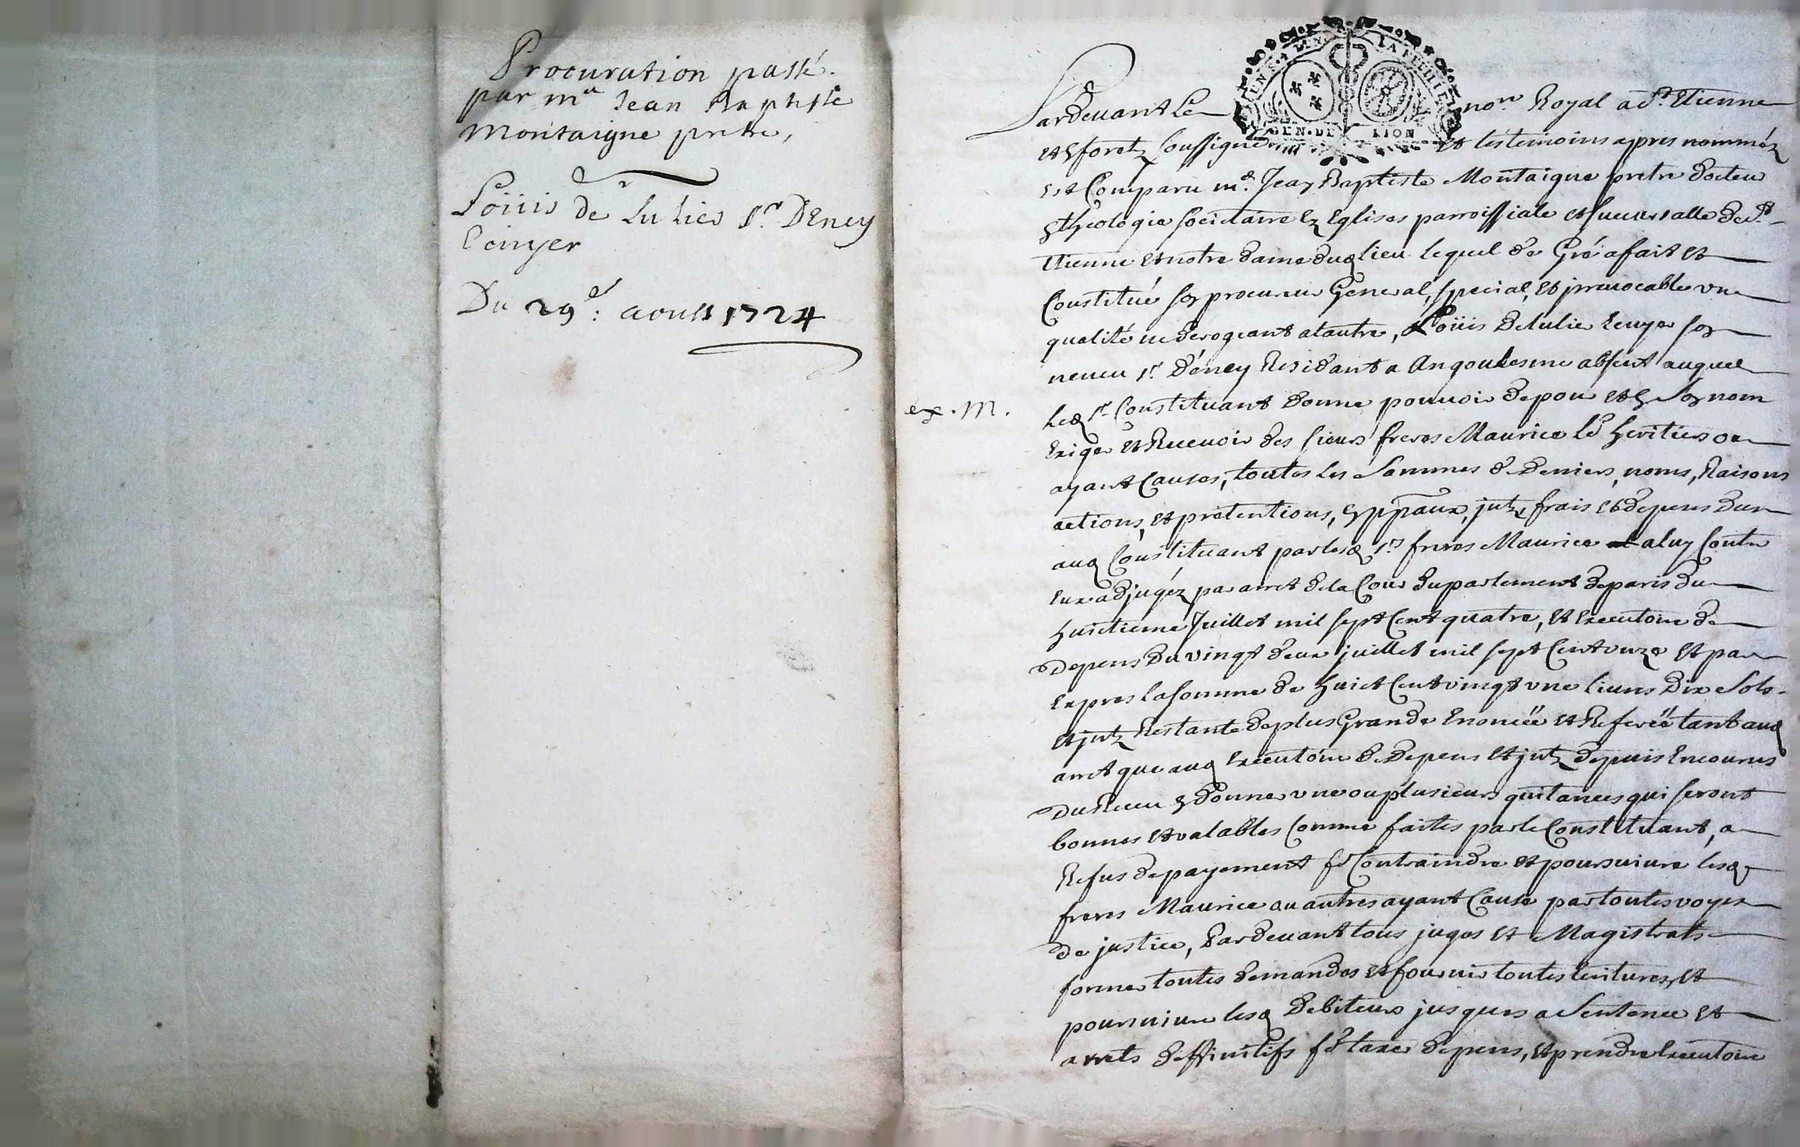 Procuration passé.
par mre Jean Baptiste
Montaigne pretre,
Loüis de Lulier Sr. DEney
Ecuyer
Du 29e: aoust 1724
GEN. DE LION
Pardevant Le nore Royal a St. Etienne
et foretz soussigné et les temoins apres nommés
est Comparu mre. Jean Baptiste Montaigne pretre docteur
Theologie societaire Ez Eglises parroissiale et succursalle de St.
Etienne et notre dame dud lieu lequel de Gré a fait et
Constitué son procureur General, special, et irrevocable une
qualité ne derogeant a lautre, Loüis Delulie Ecuyer son
neveu sr. D'éney Residant a Angoulesme absent auquel
ex. M.
Led sr. Constituant donne pouvoir de pour et en son nom
Exiger et Recevoir des sieurs freres Maurice heritiers ou
ayant Causes, toutes les sommes de deniers, noms, Raisons
actions, et pretentions, en ppaux, jntz, frais et depens deus
aud Constituant par lesd srs freres Maurice a luy Contre
Eux adjugéz par arret de la Cour du parlement de paris du
huictieme Juillet mil sept Cent quatre, et Executoire de
Depens du vingt deux juillet mil sept Cent onze et par
Expres la somme de huict Cent vingt une livres Dix sols
et jntz Restante de plus Grande Enoncéë et Referéë tant aud
arret que aud Executoire de depens et jntz depuis Encourus
Du Receu en donner une ou plusieurs quitances qui seront
bonnes et valables Comme faites par le Constituant, a
Refus de payement Contraindre et poursuivre lesd
freres Maurice ou autres ayant Cause par toutes voyes
de justice, Pardevant tous juges et Magistrats
former toutes demandes et fournir toutes Ecritures, et
poursuivre lesd Debiteurs jusques a sentence et
arrets deffinitifs taxer depens, et prendre Executoire